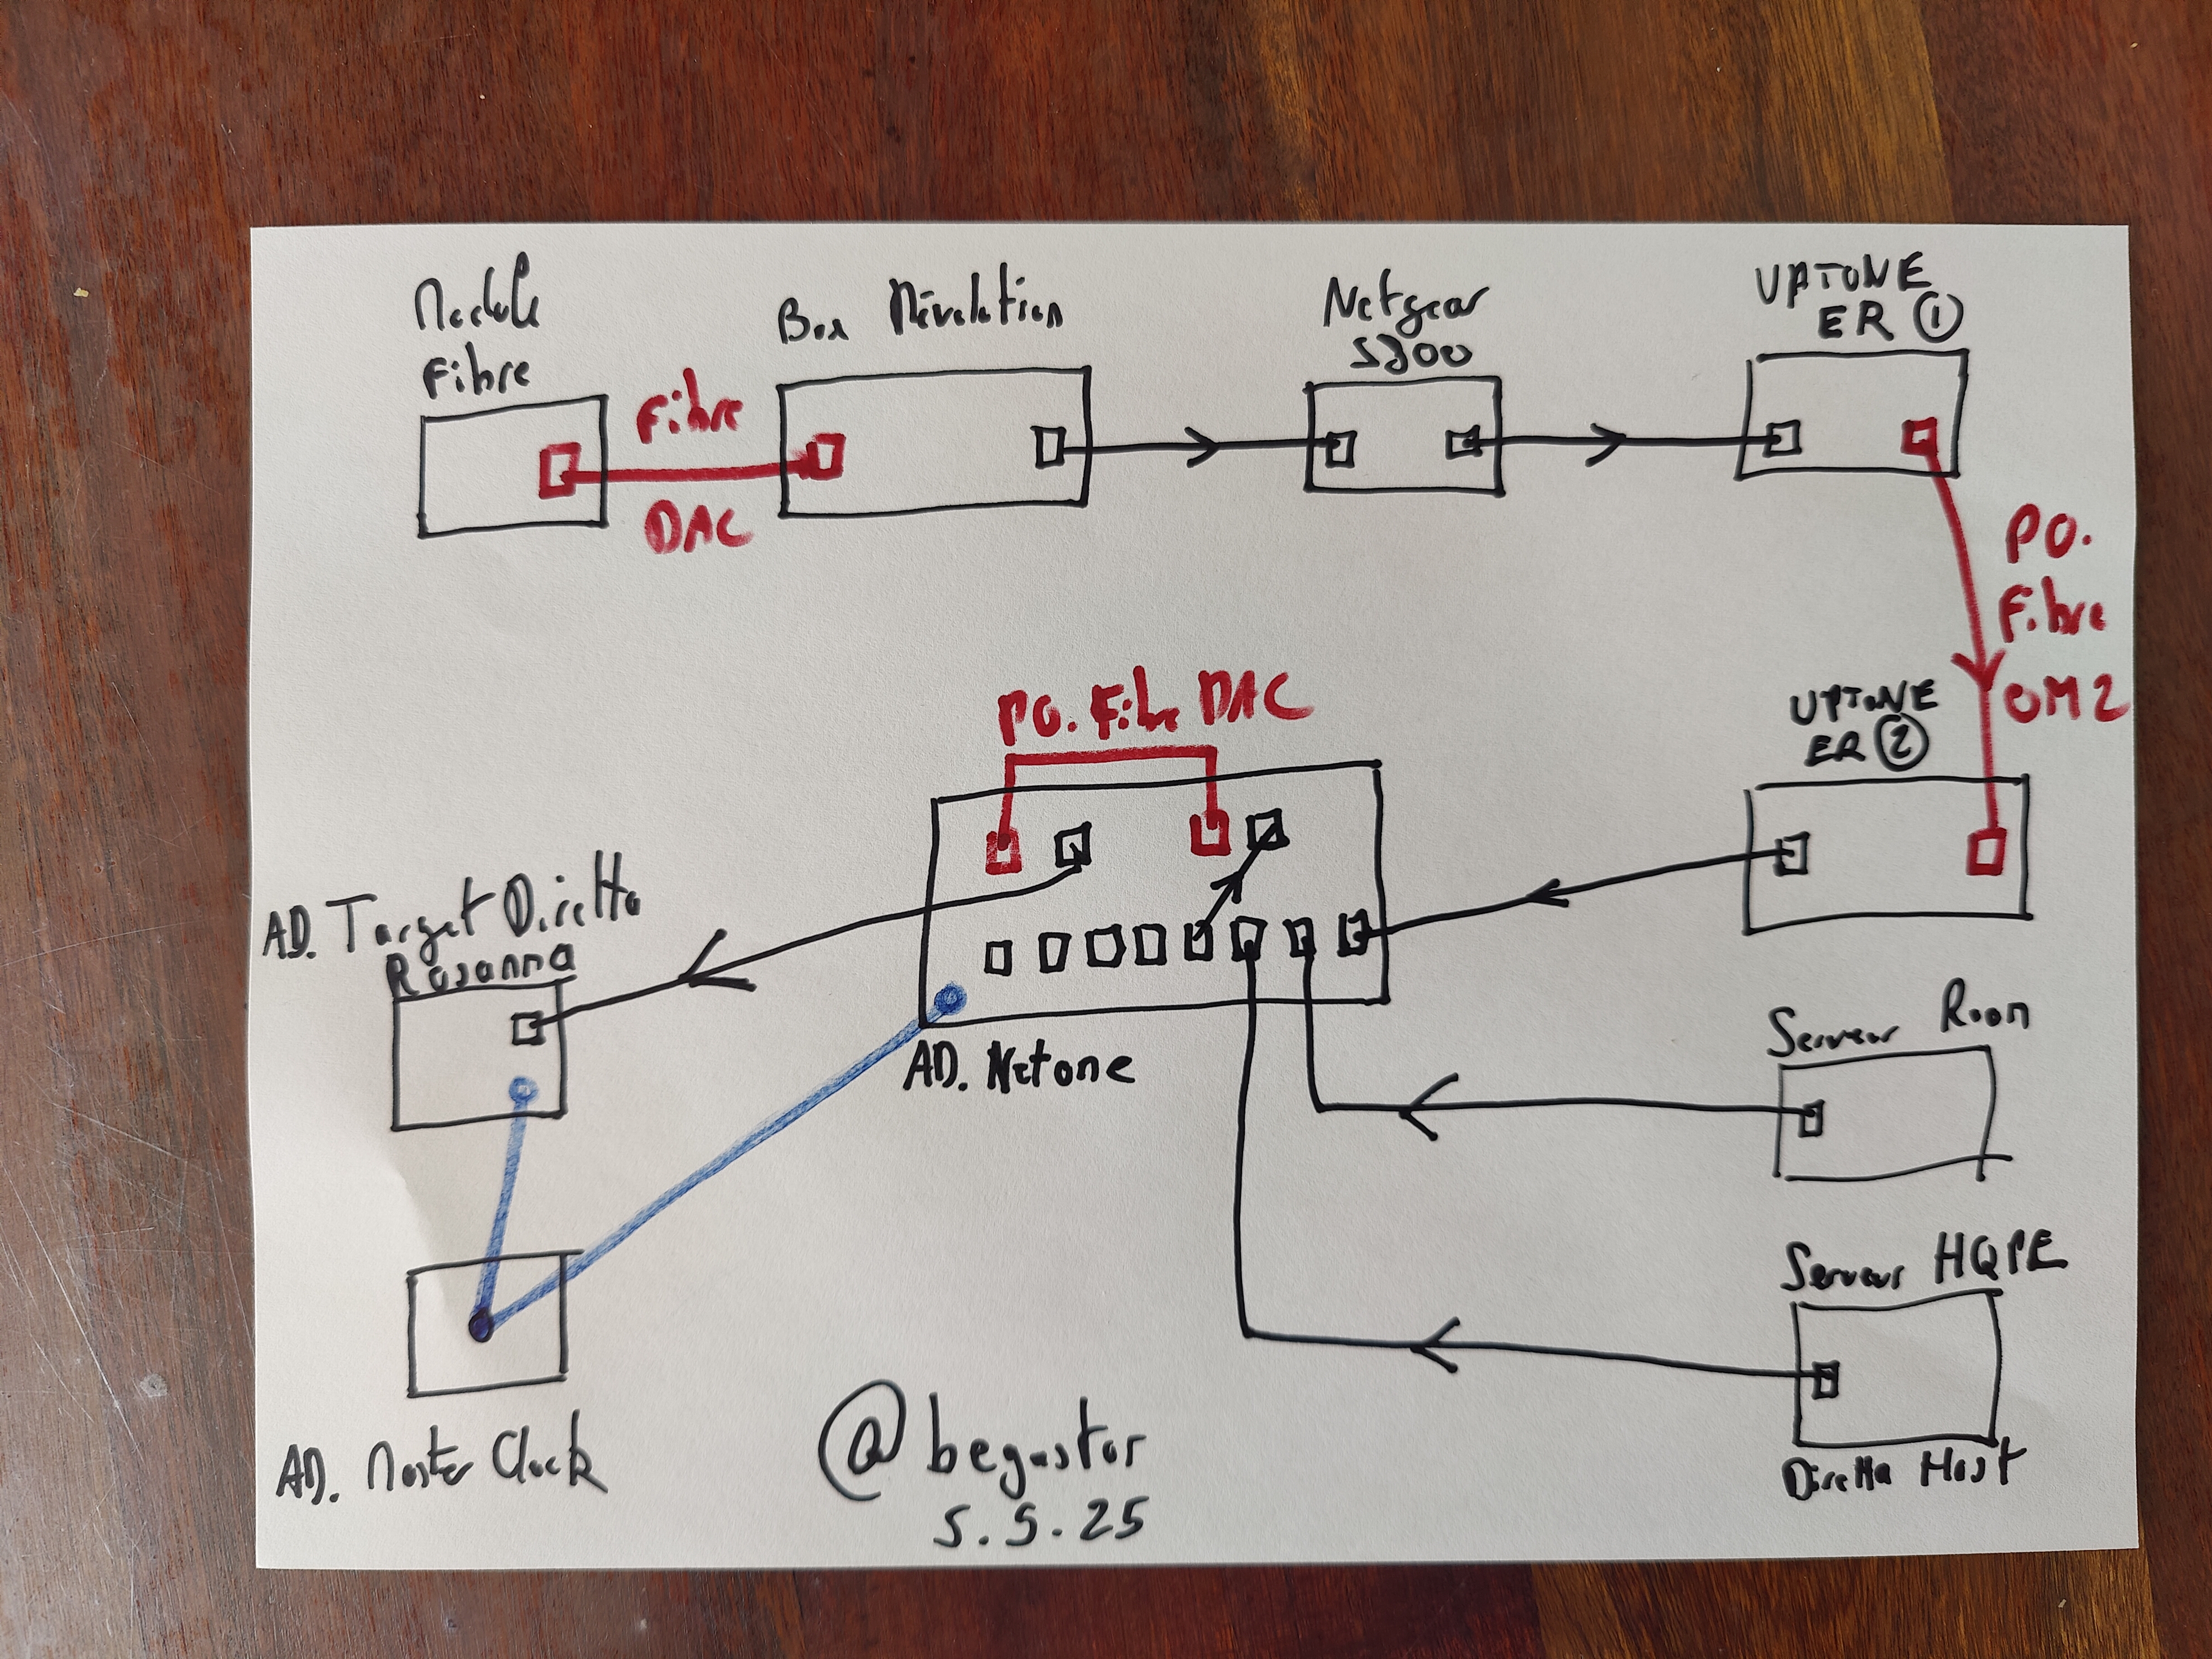 Module
Fibre
Fibre
DAC
Box Révolution
Netgear
S300
UPTONE
ER ①
PO.
Fibre
OM2
UPTONE
ER ②
PO. Fibre DAC
AD. Target Diretta
Rosanna
AD. Netone
Serveur Roon
Serveur HQPE
Diretta Host
AD. Master Clock
@begustor
5.5.25